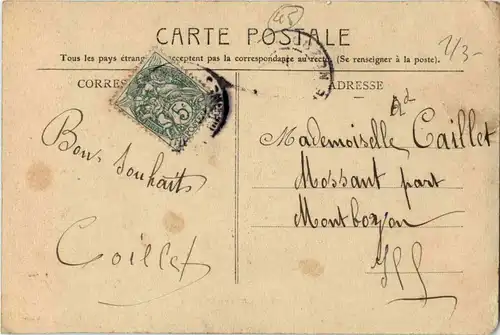 45
CARTE POSTALE
1/3-
Tous les pays étrangers n'acceptent pas la correspondance au recto. (Se renseigner à la poste).
CORRES
ADRESSE
5
Bons Souhaits
Coillet
Mademoiselle Caillet
Mossant part
Montbozon